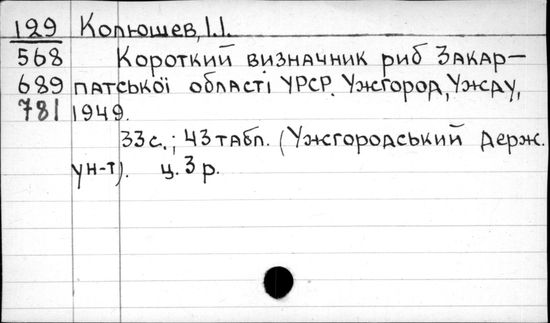 129 Колюшев, І.І.
568 Короткий визначник риб Закар-
689 патської області УРСР. Ужгород, Ужду,
781 1949.
33с.; 43табл. (Ужгородський держ.
ун-т). ц. 3 р.